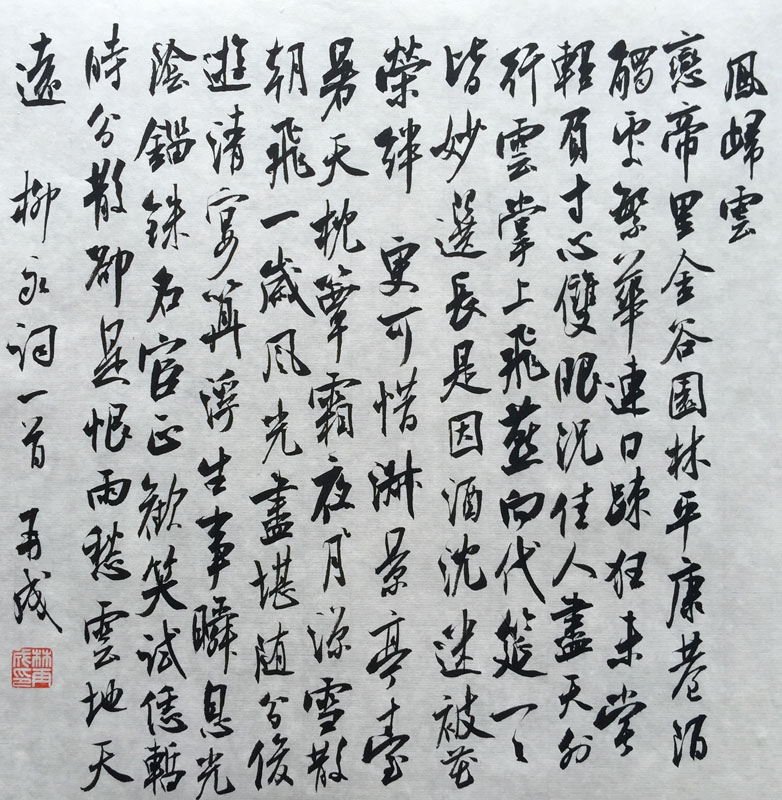 鳳歸雲
戀帝里金谷園林平康巷陌
觸處繁華連日踈狂未嘗
輕負寸心雙眼況佳人盡天外
行雲掌上飛燕向代筵一々
皆妙選長是因酒沈迷被花
榮絆 更可惜淑景亭臺
暑天枕簟霜夜月涼雪散
朝飛一歲風光盡堪随分俊
遊清宴算浮生事瞬息光
陰錙銖名宦正歡笑試恁暫
時分散卻是恨雨愁雲地天
遠 柳永詞一首 再成
林再成印